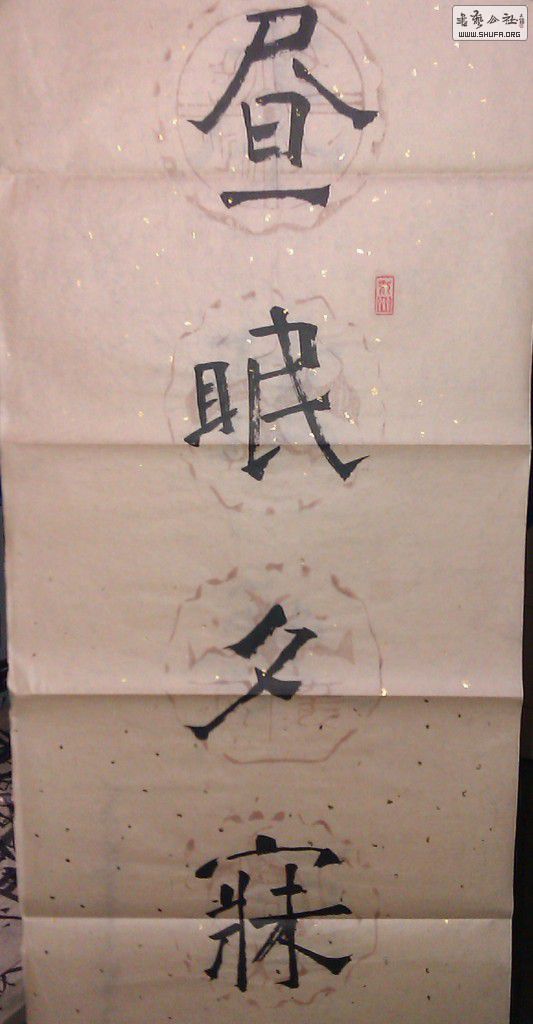 昼眠夕寐
書藝公社
WWW.SHUFA.ORG